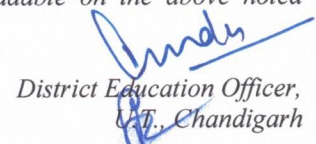 on the above noted
District Education Officer,
U.T., Chandigarh